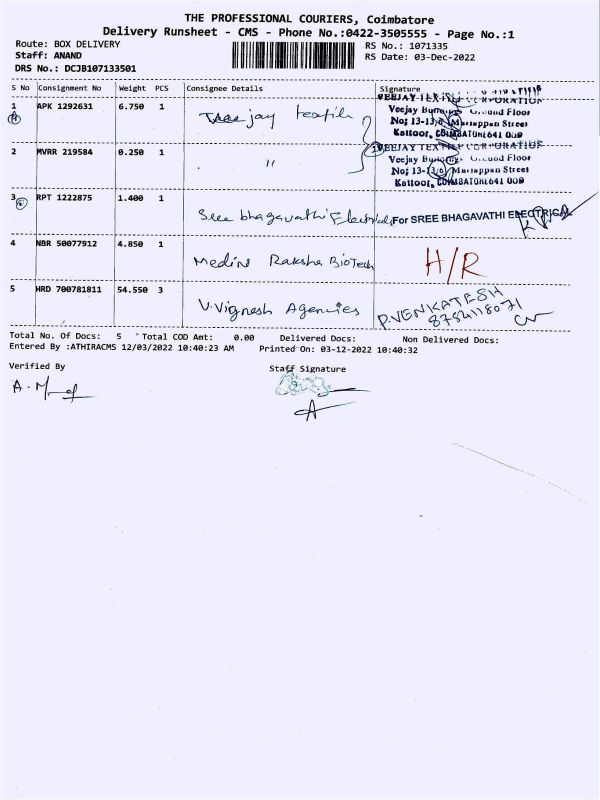 THE PROFESSIONAL COURIERS, Coimbatore
Delivery Runsheet - CMS - Phone No.:0422-3505555 - Page No.:1
Route: BOX DELIVERY
RS No.: 1071335
Staff: ANAND
RS Date: 03-Dec-2022
DRS No.: DCJB107133501
S No Consignment No Weight PCS Consignee Details Signature
1 APK 1292631 6.750 1 jay textile
VEEJAY TEXTILE CORPORATION
Veejay Buildings Ground Floor
No; 13-13/6 Mariappan Street
Kattoor, COIMBATORE 641 009
2 MVRR 219584 0.250 1 "
VEEJAY TEXTILE CORPORATION
Veejay Buildings Ground Floor
No; 13-13/6 Mariappan Street
Kattoor, COIMBATORE 641 009
3 RPT 1222875 1.400 1 Sree bhagavathi Electricals
For SREE BHAGAVATHI ELECTRICAL
4 NBR 50077912 4.850 1 Medini Raksha BioTech H/R
5 HRD 700781811 54.550 3 V.Vignesh Agencies
P.VENKATESH
8754118071
Total No. Of Docs: 5 Total COD Amt: 0.00 Delivered Docs: Non Delivered Docs:
Entered By :ATHIRACMS 12/03/2022 10:40:23 AM Printed On: 03-12-2022 10:40:32
Verified By
Staff Signature